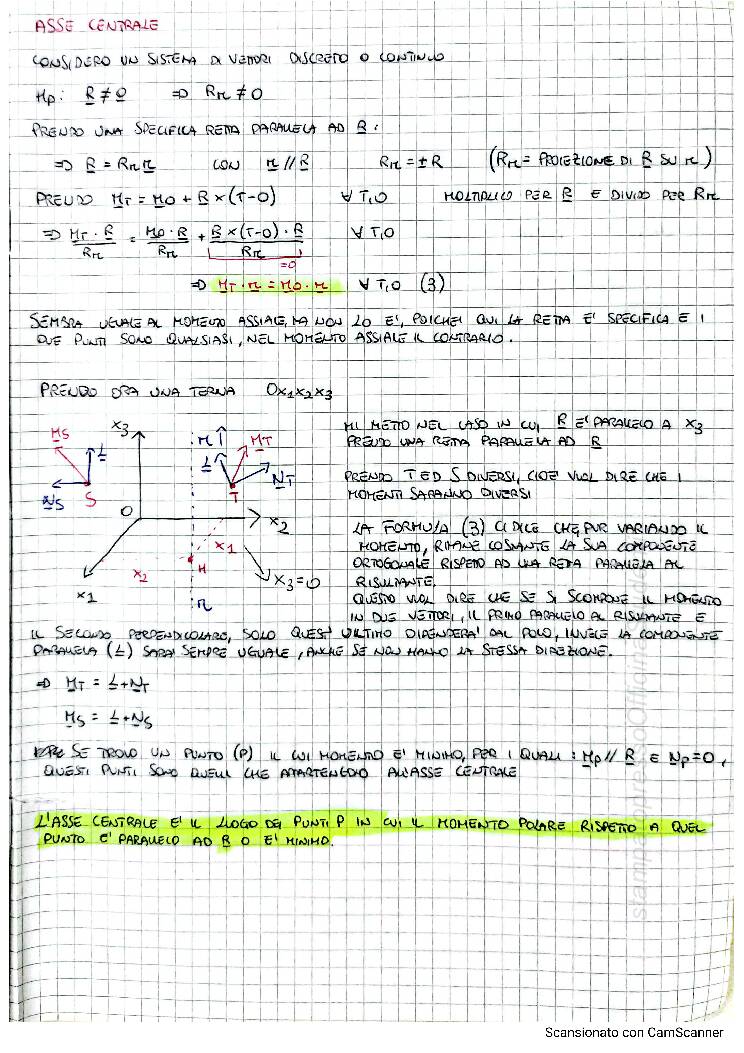 ASSE CENTRALE
CONSIDERO UN SISTEMA DI VETTORI DISCRETO O CONTINUO
Hp: R ≠ 0 ⇒ Rr ≠ 0
PRENDO UNA SPECIFICA RETTA PARALLELA AD R:
⇒ R = Rr r CON r // R Rr = ± R (Rr = PROIEZIONE DI R SU r)
PRENDO MT = MO + R × (T-O) ∀ T,O MOLTIPLICO PER R E DIVIDO PER Rr
⇒ MT · R / Rr = MO · R / Rr + R × (T-O) · R / Rr ∀ T,O
=0
⇒ MT · r = MO · r ∀ T,O (3)
SEMBRA UGUALE AL MOMENTO ASSIALE, MA NON LO E', POICHE' QUI LA RETTA E' SPECIFICA E I
DUE PUNTI SONO QUALSIASI, NEL MOMENTO ASSIALE IL CONTRARIO.
PRENDO ORA UNA TERNA Ox1x2x3
MS
L
NS
S
x3
O
x2
x1
x2
x1
H
r
L
MT
NT
T
x3=0
r
MI METTO NEL CASO IN CUI R E' PARALLELO A x3
PRENDO UNA RETTA PARALLELA AD R
PRENDO T ED S DIVERSI, CIOE' VUOL DIRE CHE I
MOMENTI SARANNO DIVERSI
LA FORMULA (3) CI DICE CHE, PUR VARIANDO IL
MOMENTO, RIMANE COSTANTE LA SUA COMPONENTE
ORTOGONALE RISPETO AD UNA RETA PARALLELA AL
RISULTANTE.
QUESTO VUOL DIRE CHE SE SI SCOMPONE IL MOMENTO
IN DUE VETTORI, IL PRIMO PARALLELO AL RISULTANTE E
IL SECONDO PERPENDICOLARE, SOLO QUEST'ULTIMO DIPENDERA' DAL POLO, INVECE LA COMPONENTE
PARALLELA (L) SARA' SEMPRE UGUALE, ANCHE SE NON HANNO LA STESSA DIREZIONE.
⇒ MT = L + NT
MS = L + NS
SE TROVO UN PUNTO (P) IL CUI MOMENTO E' MINIMO, PER I QUALI: MP // R E NP = 0,
QUESTI PUNTI SONO QUELLI CHE APPARTENGONO ALL'ASSE CENTRALE
L'ASSE CENTRALE E' IL LUOGO DEI PUNTI P IN CUI IL MOMENTO POLARE RISPETTO A QUEL
PUNTO E' PARALLELO AD R O E' MINIMO.
Scansionato con CamScanner